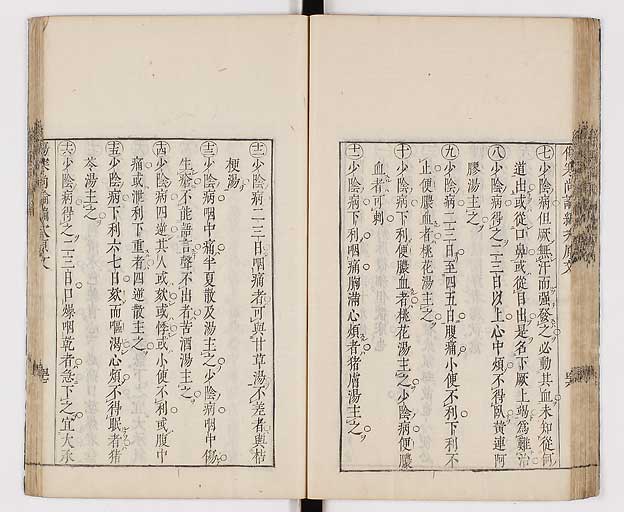 ㊆少陰病但厥無汗而强發之必動其血未知從何
道出或從口鼻或從目出是名下厥上竭為難治
㊇少陰病得之二三日以上心中煩不得臥黃連阿
膠湯主之
㊈少陰病二三日至四五日腹痛小便不利下利不
止便膿血者桃花湯主之
㊉少陰病下利便膿血者桃花湯主之少陰病便膿
血者可刺
十一少陰病下利咽痛胸滿心煩者猪膚湯主之
十二少陰病二三日咽痛者可與甘草湯不差者與桔
梗湯
十三少陰病咽中痛半夏散及湯主之少陰病咽中傷
生瘡不能語言聲不出者苦酒湯主之
十四少陰病四逆其人或欬或悸或小便不利或腹中
痛或泄利下重者四逆散主之
十五少陰病下利六七日欬而嘔渴心煩不得眠者猪
苓湯主之
十六少陰病得之二三日口燥咽乾者急下之宜大承